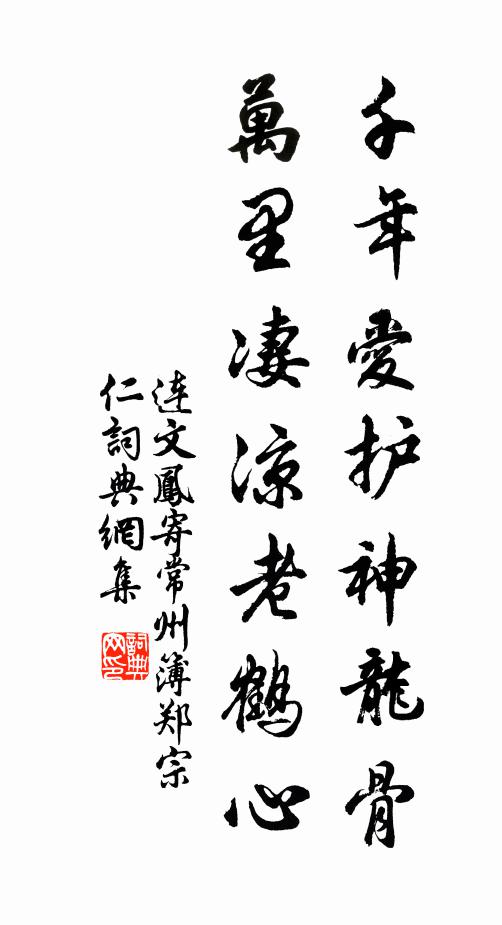 千年愛护神龍骨
萬里凄涼老鶴心
連文鳳寄常州簿郑宗
仁詞典網集
詞典網印